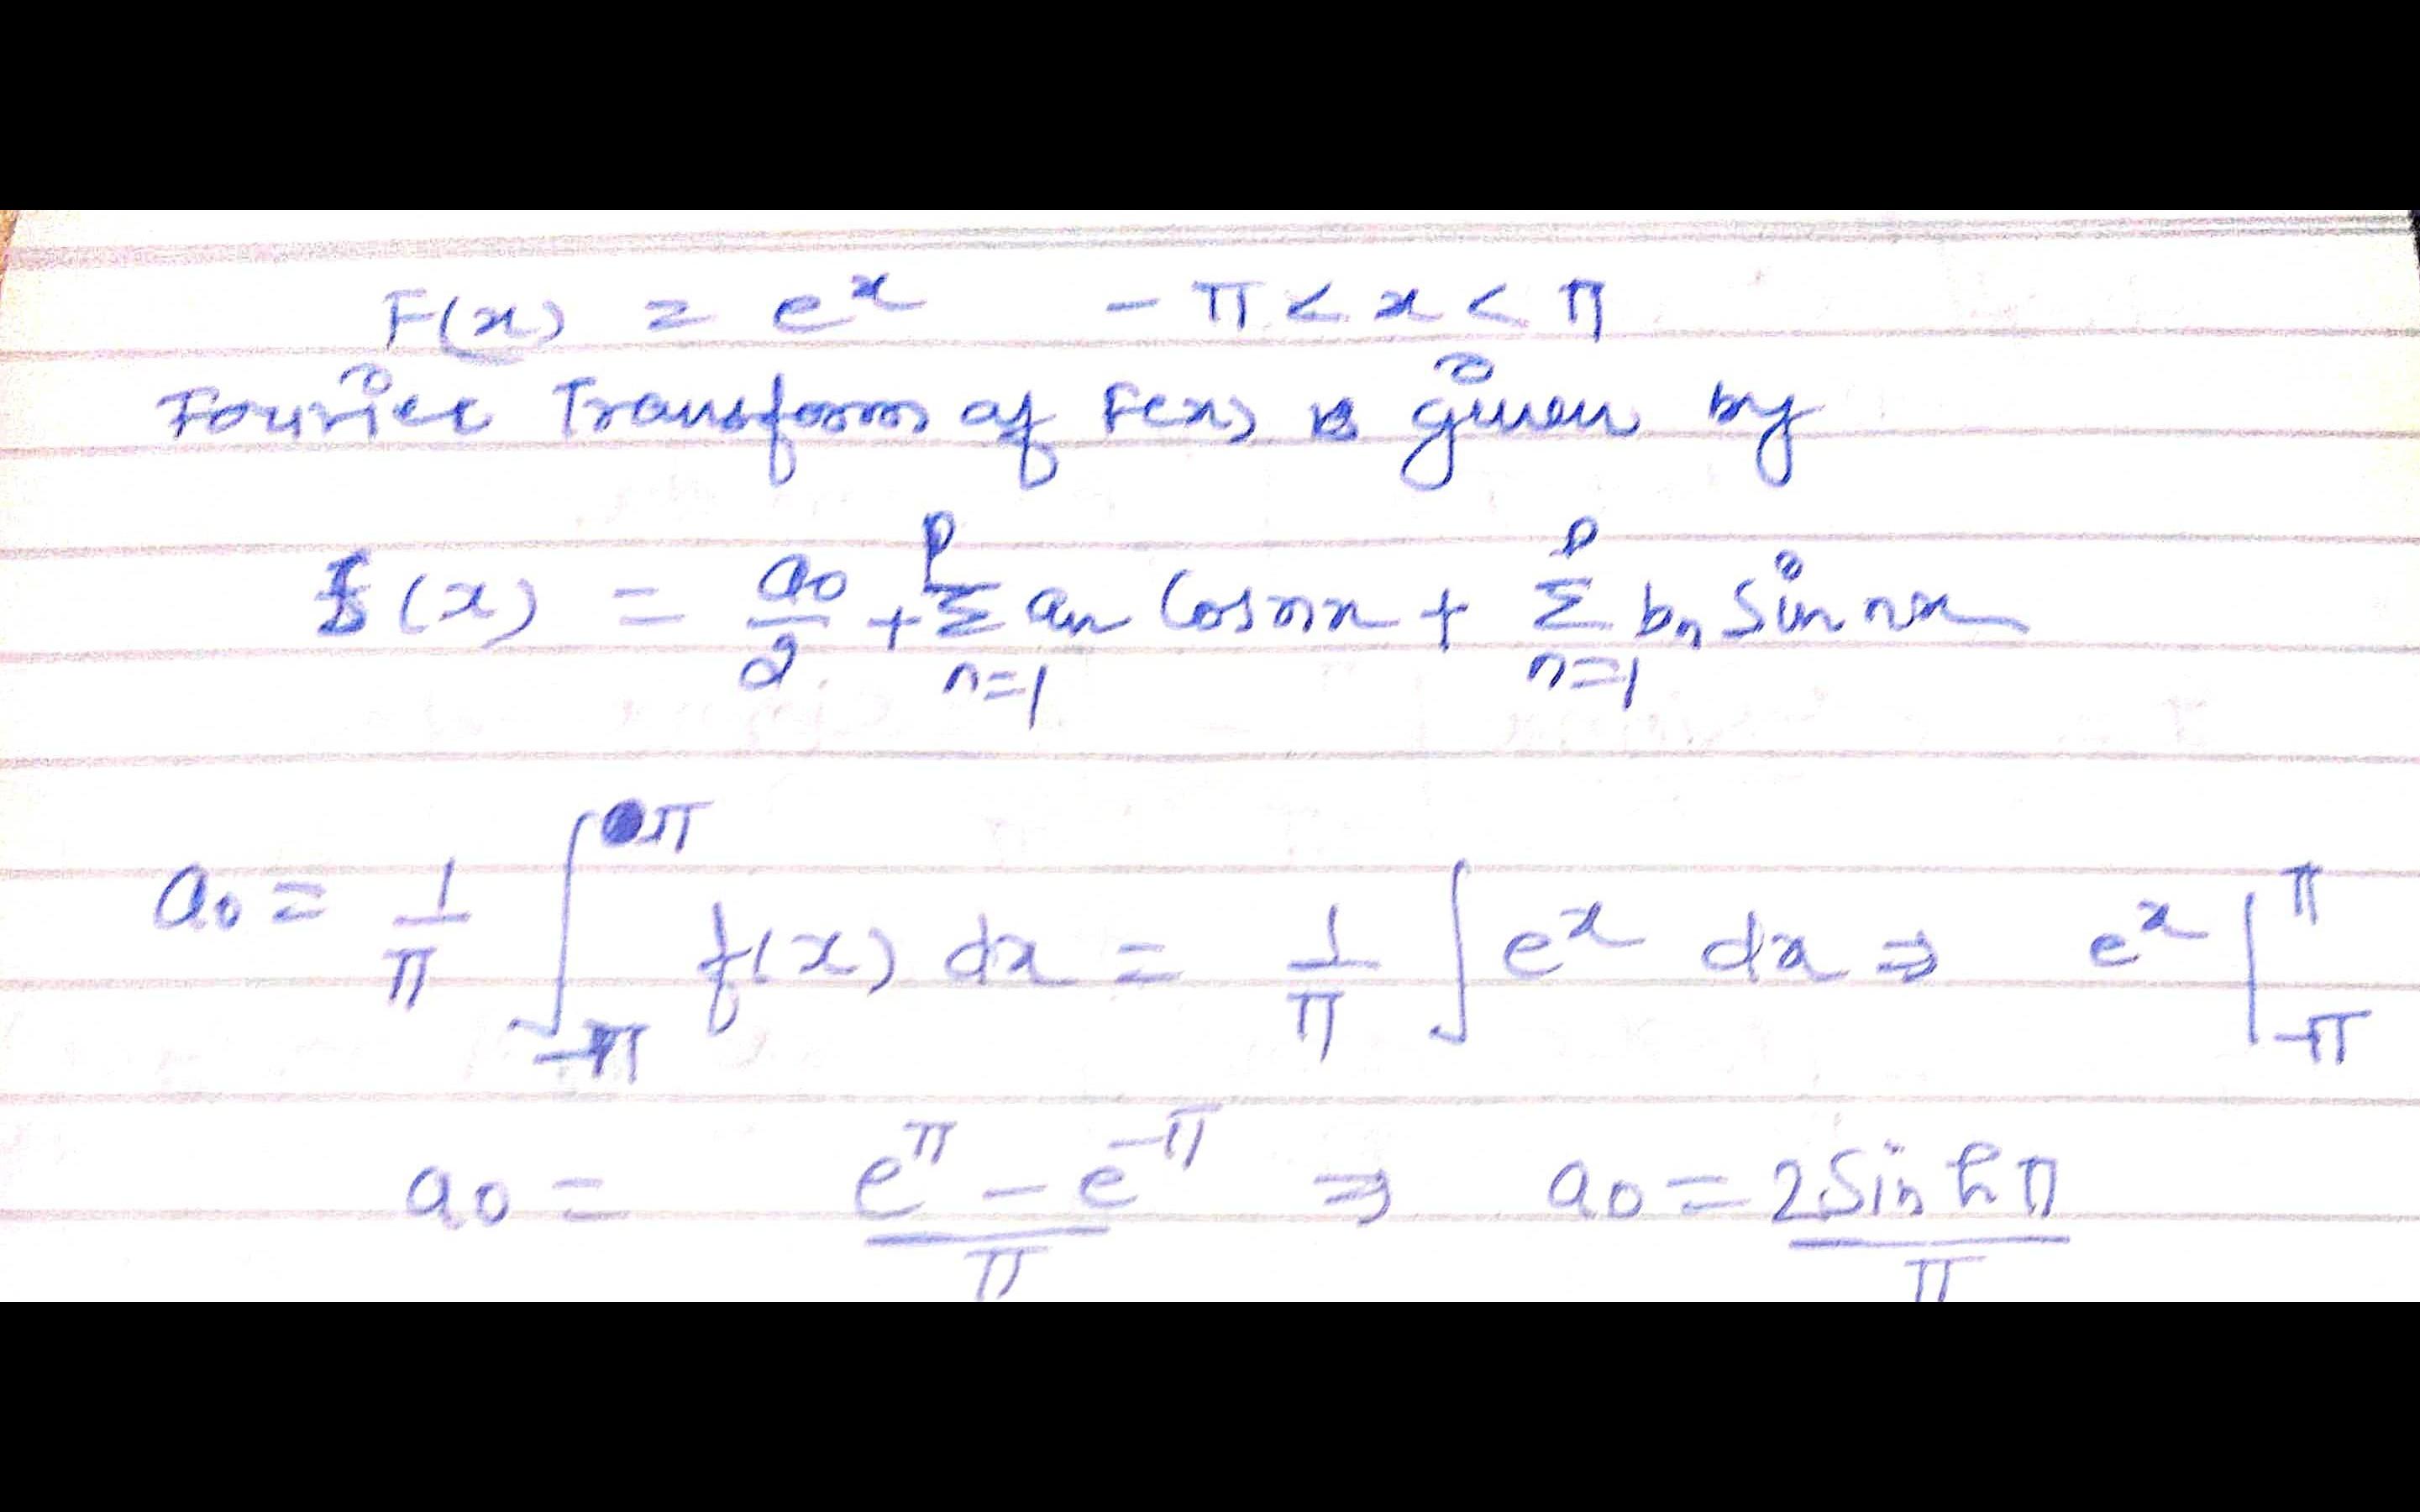 F(x) = e^x   -π < x < π
Fourier Transform of F(x) is given by
f(x) = a0/2 + Σ_{n=1}^{p} an Cos nx + Σ_{n=1}^{p} bn Sin nx
a0 = 1/π ∫_{-π}^{π} f(x) dx = 1/π ∫ e^x dx ⇒ e^x |_{-π}^{π}
a0 = (e^π - e^-π)/π ⇒ a0 = 2Sin hπ/π